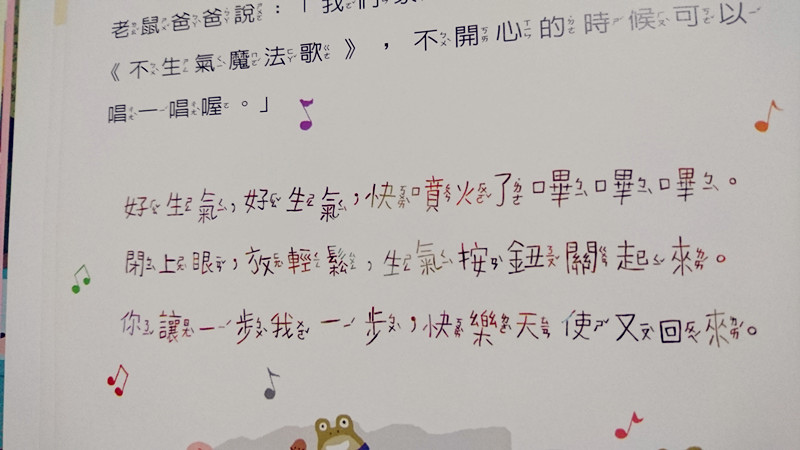 老鼠爸爸說：「我們
《不生氣魔法歌》，不開心的時候可以
唱一唱喔。」
好生氣，好生氣，快噴火了嗶嗶嗶。
閉上眼，放輕鬆，生氣按鈕關起來。
你讓一步我一步，快樂天使又回來。